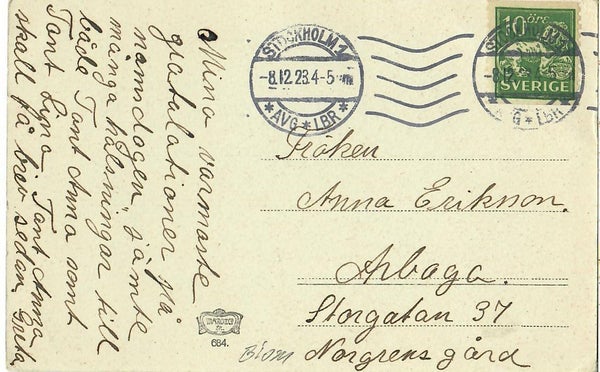 Mina varmaste
gratulationer på
namnsdagen, jämte
många hälsningar till
både Tant Anna samt
Tant Lyna. Tant Anna
skall få brev sedan. Greta
STOCKHOLM 1
-8.12.23.4-5
*AVG*LBR*
10 ÖRE
SVERIGE
Fröken
Anna Erikson.
Arboga.
Storgatan 37
Norgrens gård
684.